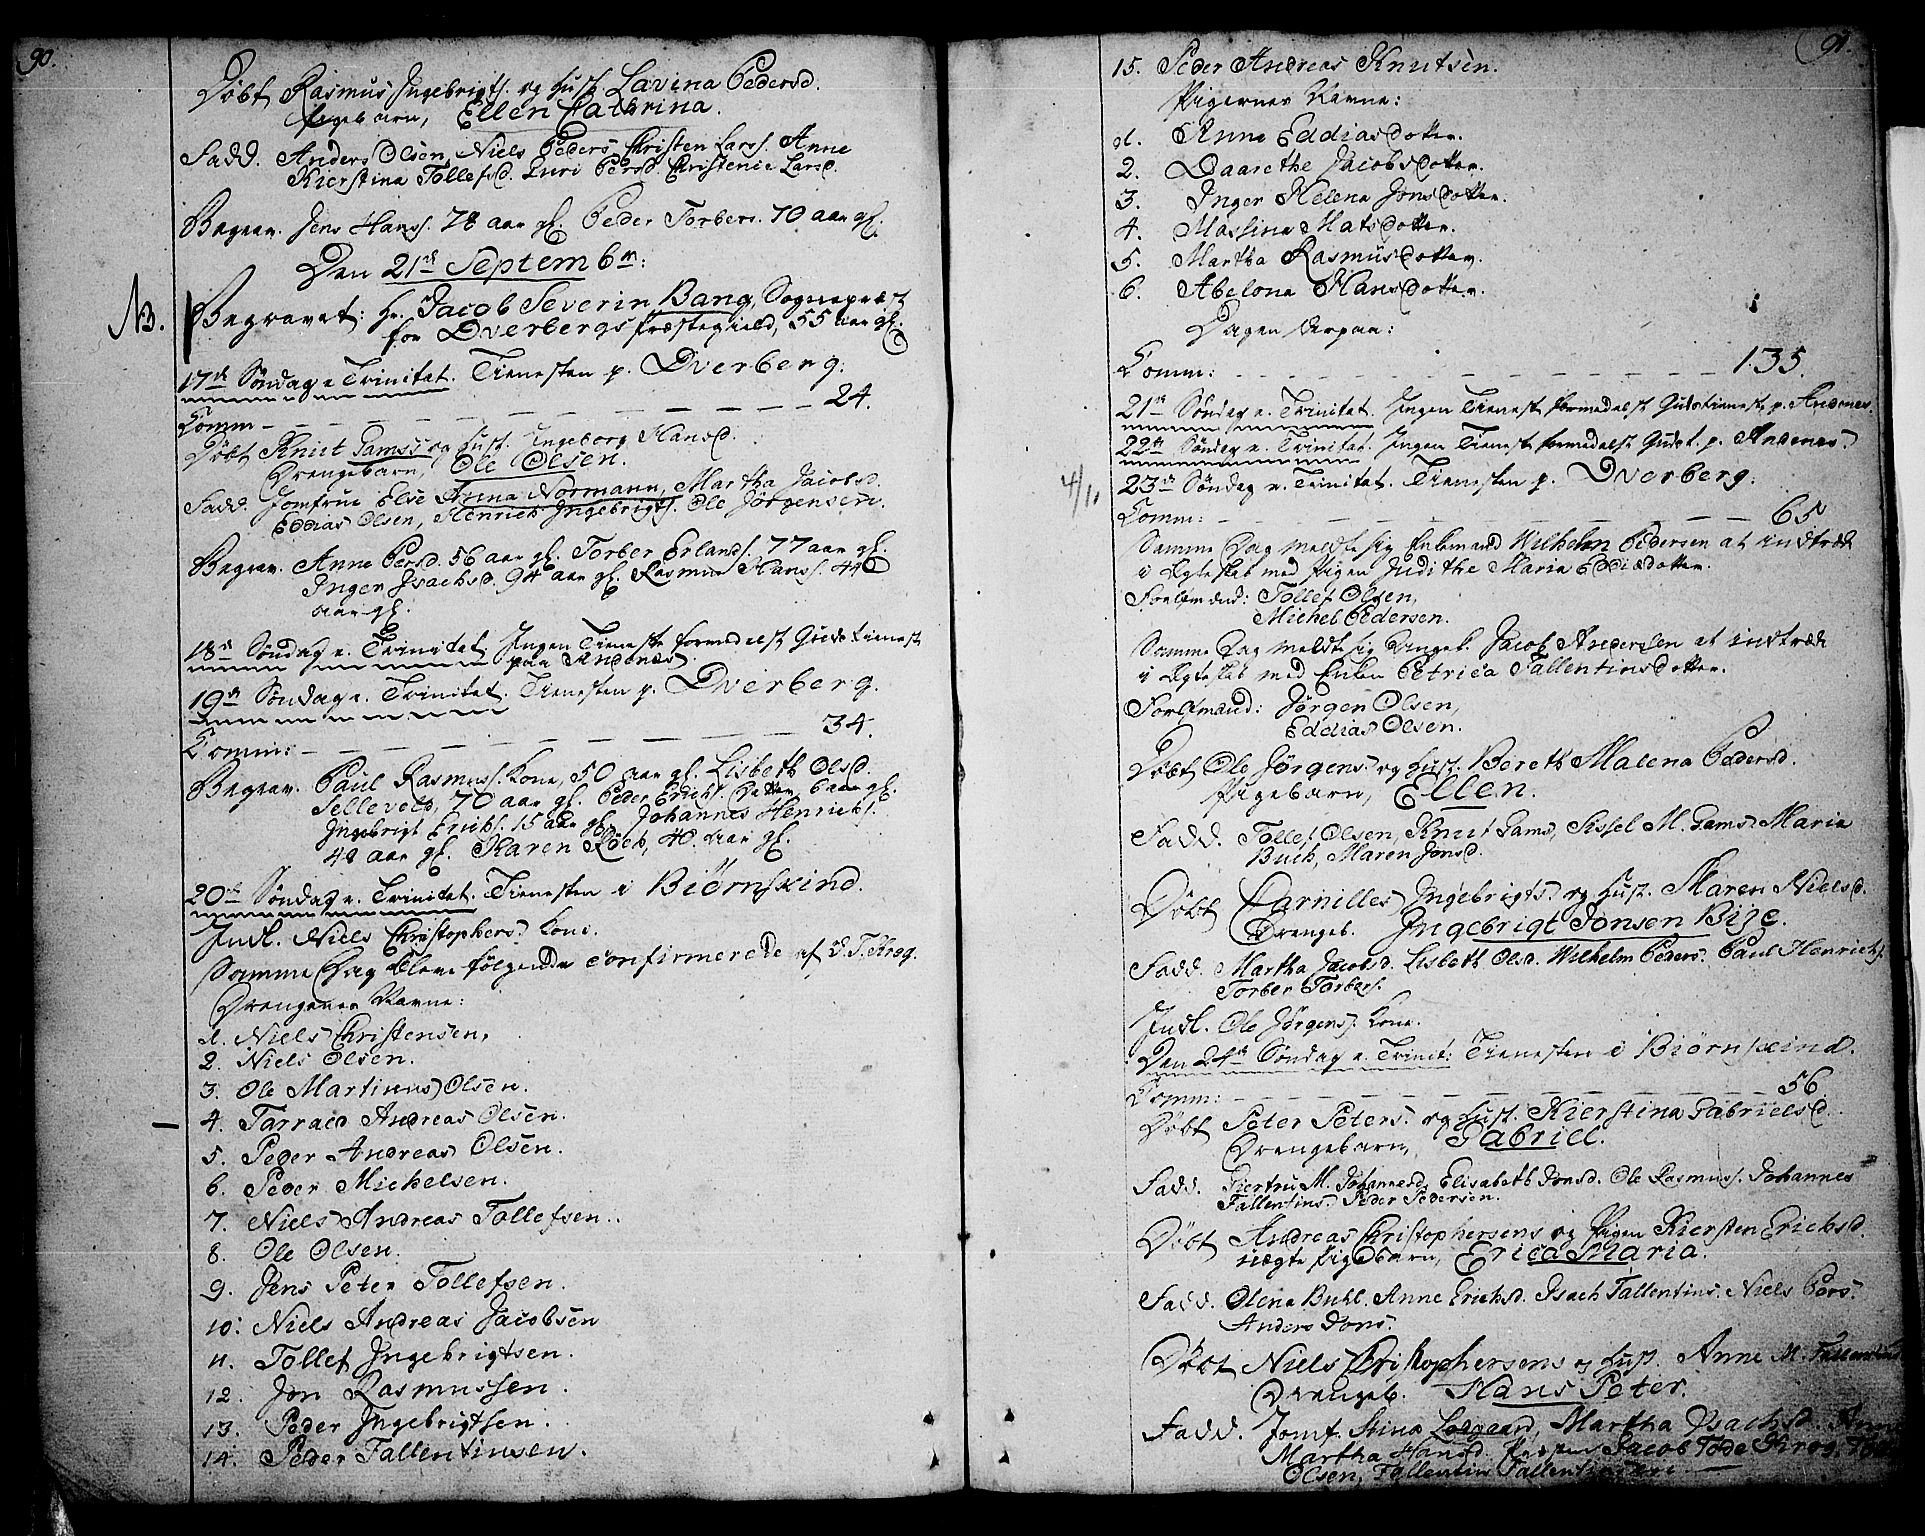 90.
Døbt Rasmus Ingebrigts. og Hust. Lavina Pedersd.
Pigebarn, Ellen Cathrina.
Fadd. Anders Olsen, Niels Peders. Christen Lars. Anne
Kierstina Tollefsd. Guri Persd. Christenia Larsd.
Begrav. Jens Hans. 78 aar gl. Peder Torbers. 70 aar gl.
Den 21de Septembr:
NB. Begravet: Hr. Jacob Severin Bang, Sognepræst
for Dverbergs Præstegield, 55 aar gl.
17de Søndag e. Trinitat. Tienesten p. Dverberg:
Comm - - - 24.
Døbt Knut Gams. og Hust. Ingeborg Hansd.
Drengebarn, Ole Olsen.
Fadd. Jomfrue Else Anna Normann, Martha Jacobsd.
Eddias Olsen, Henrich Ingebrigts. Ole Jørgensen.
Begrav. Anne Persd. 56 aar gl. Torber Erlands. 77 aar gl.
Inger Isachsd. 94 aar gl. Rasmus Hans. 44
aar gl.
18de Søndag e. Trinitat. Ingen Tieneste formedelst Gudstienest
paa Andenæs.
19de Søndag e. Trinitat. Tienesten p. Dverberg.
Comm: - - - 34.
Begrav. Paul Rasmus. Kone, 50 aar gl. Lisbeth Olsd.
Sellevold, 70 aar gl. Peder Erichs. Datter 6 aar gl.
Ingebrigt Erichs. 15 aar gl. Johannes Henrichs.
48 aar gl. Karen Röch, 40. aar gl.
20de Søndag e. Trinitat. Tienesten i Biørnskind.
Indl. Niels Christophers. Kone.
Samme Dag bleve følgende confirmerede af D. T. Krog.
Drengenes Navne:
1. Niels Christensen,
2. Niels Olsen.
3. Ole Martinus Olsen.
4. Tarrald Andreas Olsen.
5. Peder Andreas Olsen.
6. Peder Michelsen.
7. Niels Andreas Tollefsen.
8. Ole Olsen.
9. Jens Peter Tollefsen.
10: Niels Andreas Jacobsen
11. Tollef Ingebrigtsen.
12. Jon Rasmussen.
13. Peder Ingebrigtsen.
14. Peder Fallentinsen.
91.
15. Peder Andreas Knutsen.
Pigernes Navne:
1. Anne Eddiasdotter.
2. Daarethe Jacobsdotter.
3. Inger Helena Jonsdotter.
4. Massina Matsdotter.
5. Martha Rasmusdotter.
6. Abelona Hansdotter.
Dagen derpaa:
Comm: - - - 135.
21de Søndag e. Trinitat. Ingen Tieneste formedelst Gudstienest p. Andenes.
22de Søndag e. Trinitat. Ingen Tieneste formedelst Gudst. p. Andenæs.
4/11 23de Søndag e. Trinitat. Tienesten p. Dverberg:
Comm: - - - 65
Samme Dag meldte sig Enkemand Wilhelm Pedersen at indtræde
i Egteskab med Pigen Judithe Maria Eddiædotter.
Forlofmænd: Tollef Olsen,
Michel Pedersen.
Samme Dag meldte sig Ungek. Jacob Andersen at indtræde
i Egteskab med Enken Petrica Fallentinsdotter.
Forlofmænd: Jørgen Olsen,
Eddias Olsen.
Døbt Ole Jørgens. og Hust. Bereth Malena Pedersd.
Pigebarn, Ellen.
Fadd. Tollef Olsen, Knut Gams. Sissel M. Gams. Maria
Buch, Maren Jonsd.
Døbt Carnilles Ingebrigts. og Hust. Maren Nielsd.
Drengeb. Ingebrigt Jonsen Bije.
Fadd. Martha Jacobsd. Lisbeth Olsd. Wilhelm Peders. Paul Henrichs.
Torber Torbers.
Indl. Ole Jørgens. Kone.
Den 24de Søndag e. Trinit: Tienesten i Biørnskind.
Comm: - - - 56
Døbt Peter Peters. og Hust. Kierstina Gabrielsd.
Drengebarn, Gabriel.
Fadd. Giertru M. Johannesd. Elisabeth Jonsd. Ole Rasmus. Johannes
Fallentins. Peder Pedersen.
Døbt Andreas Christophersens og Pigen Kiersten Erichsd.
uægte Pigebarn, Erica Maria.
Fadd. Olena Buhl. Anne Erichsd. Isach Fallentins. Niels Pers.
Anders Jons.
Døbt Niels Christophersens og Hust. Anne M. Fallentins
Drengeb. Hans Peter.
Fadd. Jomf. Stina Lodgaard, Martha Isachsd. Anne
Martha Hansd. Jacob Tode Krog,
Olsen, Fallentin Fallentinsen